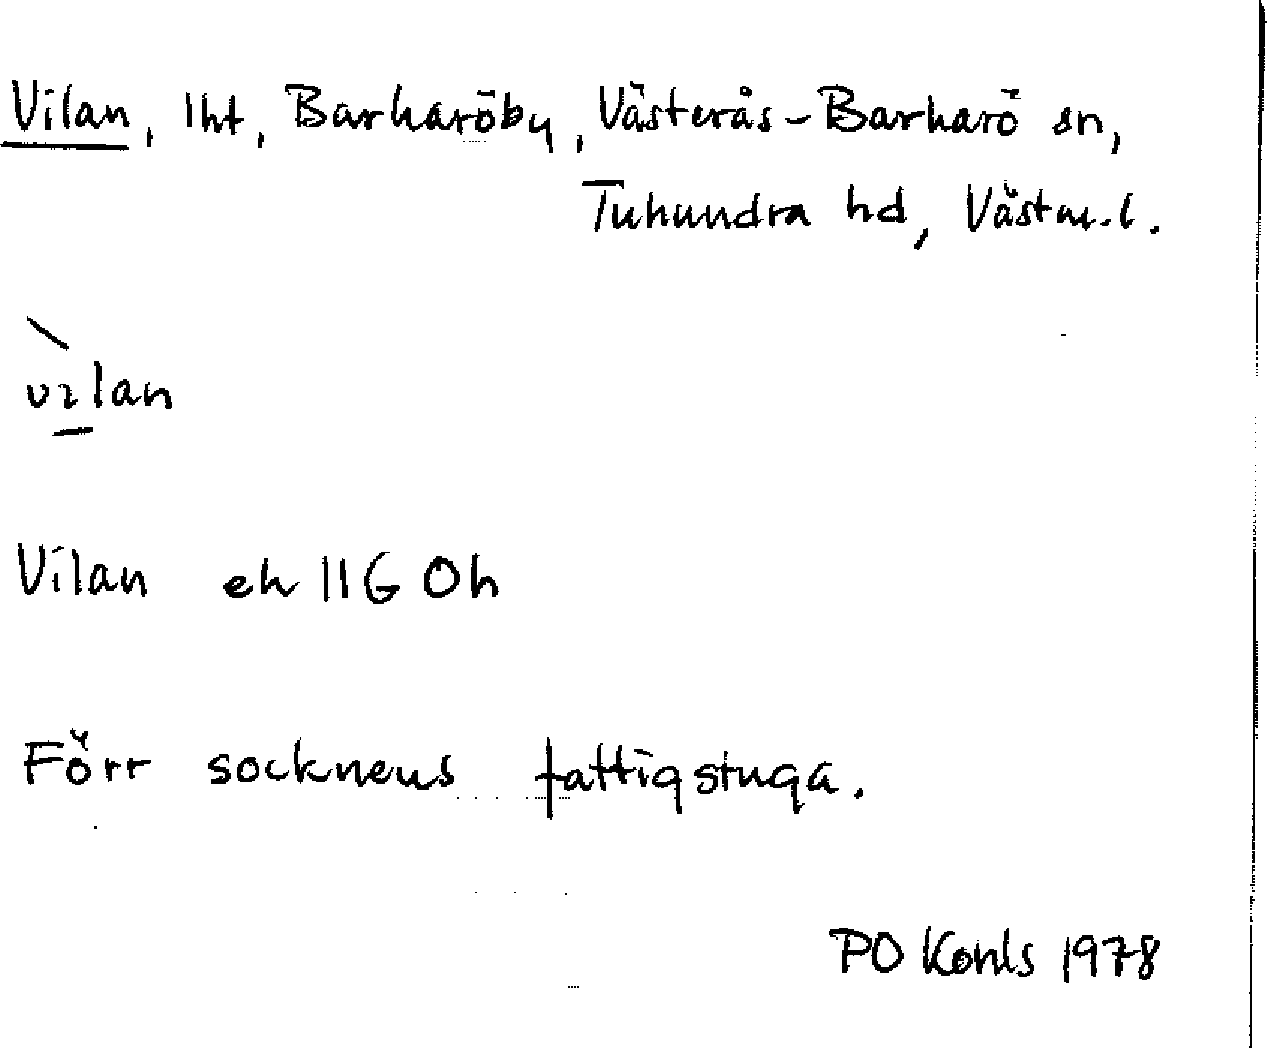 Vilan, lht, Barkaröby, Västerås-Barkarö sn,
Tuhundra hd, Västm.l.
vılan
Vilan ek 11G 0h
Förr socknens fattigstuga.
PO Kohls 1978